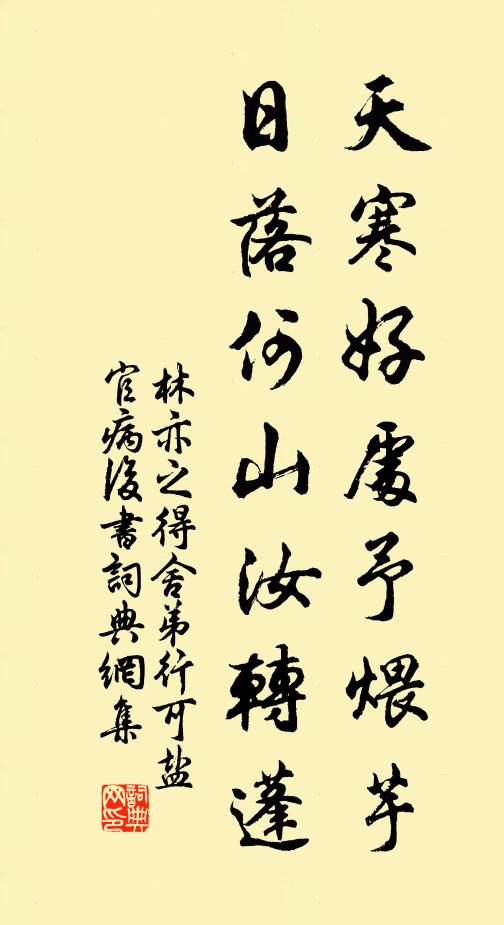 天寒好處予煨芋
日落何山汝轉蓬
林亦之得舍弟行可盐
官病後書詞典網集
詞典網印